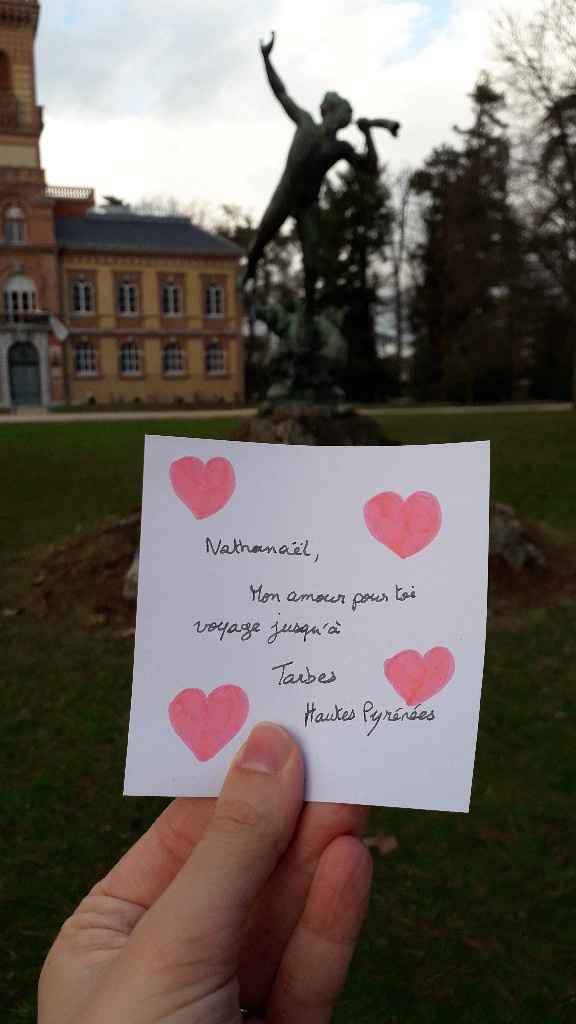 Nathanaël,
Mon amour pour toi
voyage jusqu'à
Tarbes
Hautes Pyrénées